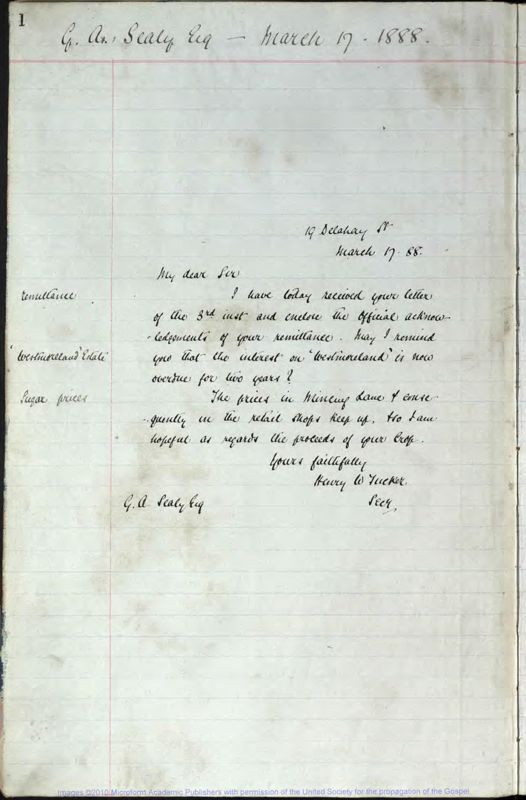 1
G. A.: Sealy Esq — March 17 - 1888.
19 Delahay St
March 17. 88.
My dear Sir
remittance
I have today received your letter
of the 3rd inst and enclose the Official acknow-
-ledgements of your remittance. May I remind
"Westmoreland" Estate
you that the interest on "Westmoreland" is now
overdue for two years?
Sugar prices
The prices in Mincing Lane & conse-
-quently in the retail shops keep up, & so I am
hopeful as regards the proceeds of your Crop.
Yours faithfully
Henry W Tucker.
G. A Sealy Esq
Secy,
Images ©2010 Microform Academic Publishers with permission of the United Society for the propagation of the Gospel